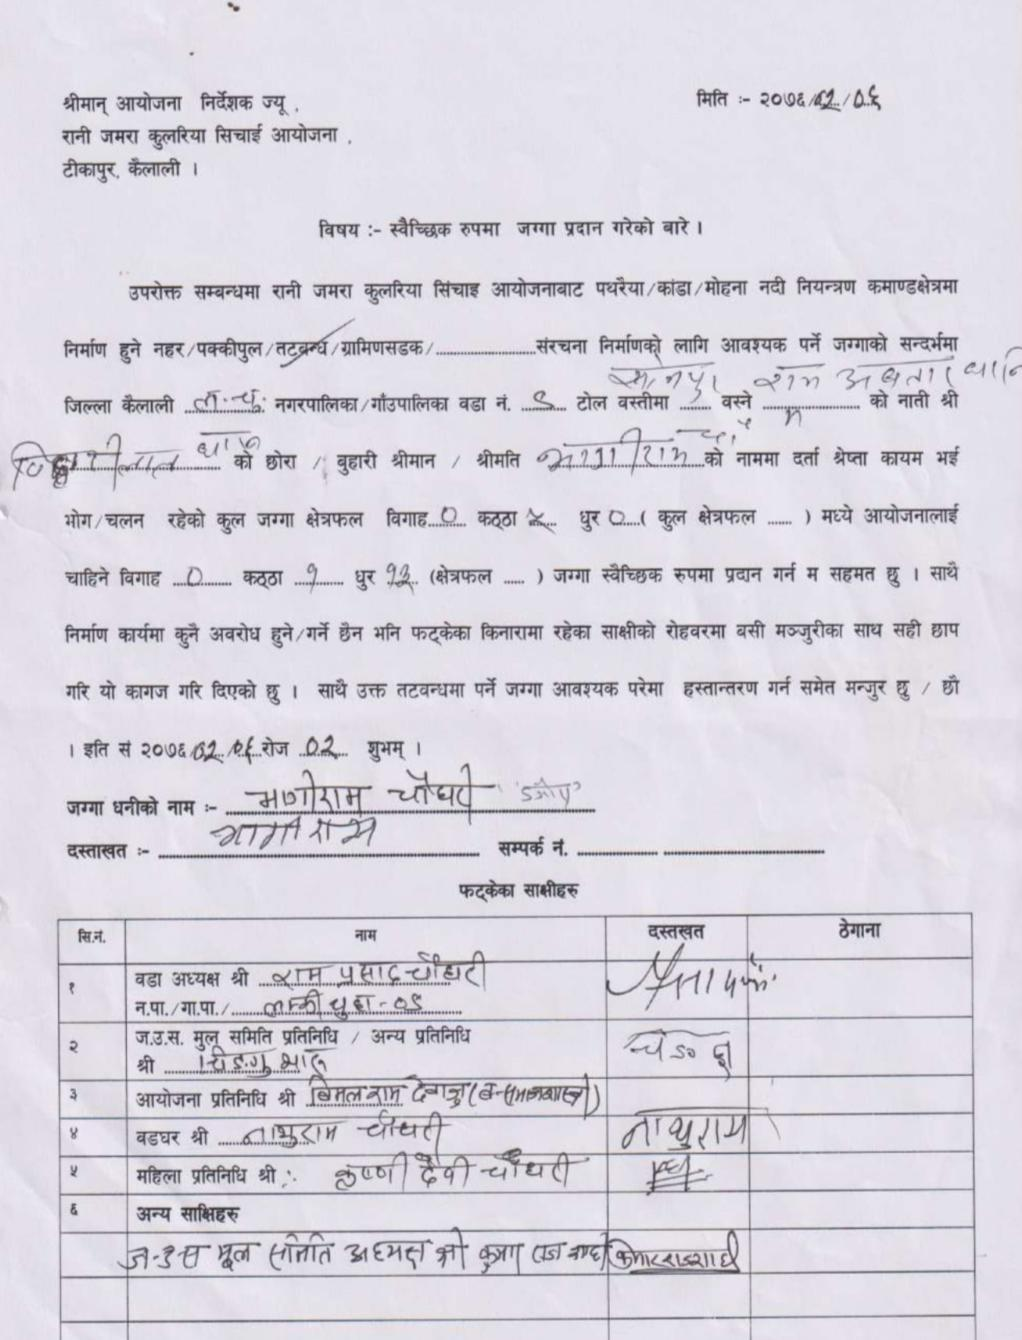 श्रीमान् आयोजना निर्देशक ज्यू ,
मिति :- २०७६/०२/०६
रानी जमरा कुलरिया सिचाई आयोजना ,
टीकापुर, कैलाली ।
विषय :- स्वैच्छिक रुपमा जग्गा प्रदान गरेको बारे ।
उपरोक्त सम्बन्धमा रानी जमरा कुलरिया सिंचाइ आयोजनाबाट पथरैया/कांडा/मोहना नदी नियन्त्रण कमाण्डक्षेत्रमा
निर्माण हुने नहर/पक्कीपुल/तटबन्ध/ग्रामिणसडक/....................संरचना निर्माणको लागि आवश्यक पर्ने जग्गाको सन्दर्भमा
जिल्ला कैलाली ल.चु. नगरपालिका/गाँउपालिका वडा नं. ९ टोल वस्तीमा वस्ने राम अवतार को नाती श्री
को छोरा / बुहारी श्रीमान / श्रीमति को नाममा दर्ता श्रेष्ता कायम भई
भोग/चलन रहेको कुल जग्गा क्षेत्रफल विगाह ० कठ्ठा धुर ० ( कुल क्षेत्रफल ...... ) मध्ये आयोजनालाई
चाहिने विगाह ० कठ्ठा १ धुर १२ (क्षेत्रफल ..... ) जग्गा स्वैच्छिक रुपमा प्रदान गर्न म सहमत छु । साथै
निर्माण कार्यमा कुनै अवरोध हुने/गर्ने छैन भनि फट्केका किनारामा रहेका साक्षीको रोहवरमा बसी मञ्जुरीका साथ सही छाप
गरि यो कागज गरि दिएको छु । साथै उक्त तटवन्धमा पर्ने जग्गा आवश्यक परेमा हस्तान्तरण गर्न समेत मन्जुर छु / छौ
। इति सं २०७६/०२/०६ रोज ०२ शुभम् ।
जग्गा धनीको नाम :- चौधरी
दस्ताखत :- सम्पर्क नं.
फट्केका साक्षीहरु
सि.नं. नाम दस्तखत ठेगाना
१ वडा अध्यक्ष श्री राम प्रसाद चौधरी
न.पा./गा.पा./ लम्की चुहा-०९
२ ज.उ.स. मुल समिति प्रतिनिधि / अन्य प्रतिनिधि
श्री
३ आयोजना प्रतिनिधि श्री बिमलराम
४ वडघर श्री नाथुराम चौधरी नाथुराम
५ महिला प्रतिनिधि श्री : कृष्णी देवी चौधरी
६ अन्य साक्षिहरु
ज.उ.स मूल समिति अध्यक्ष श्री